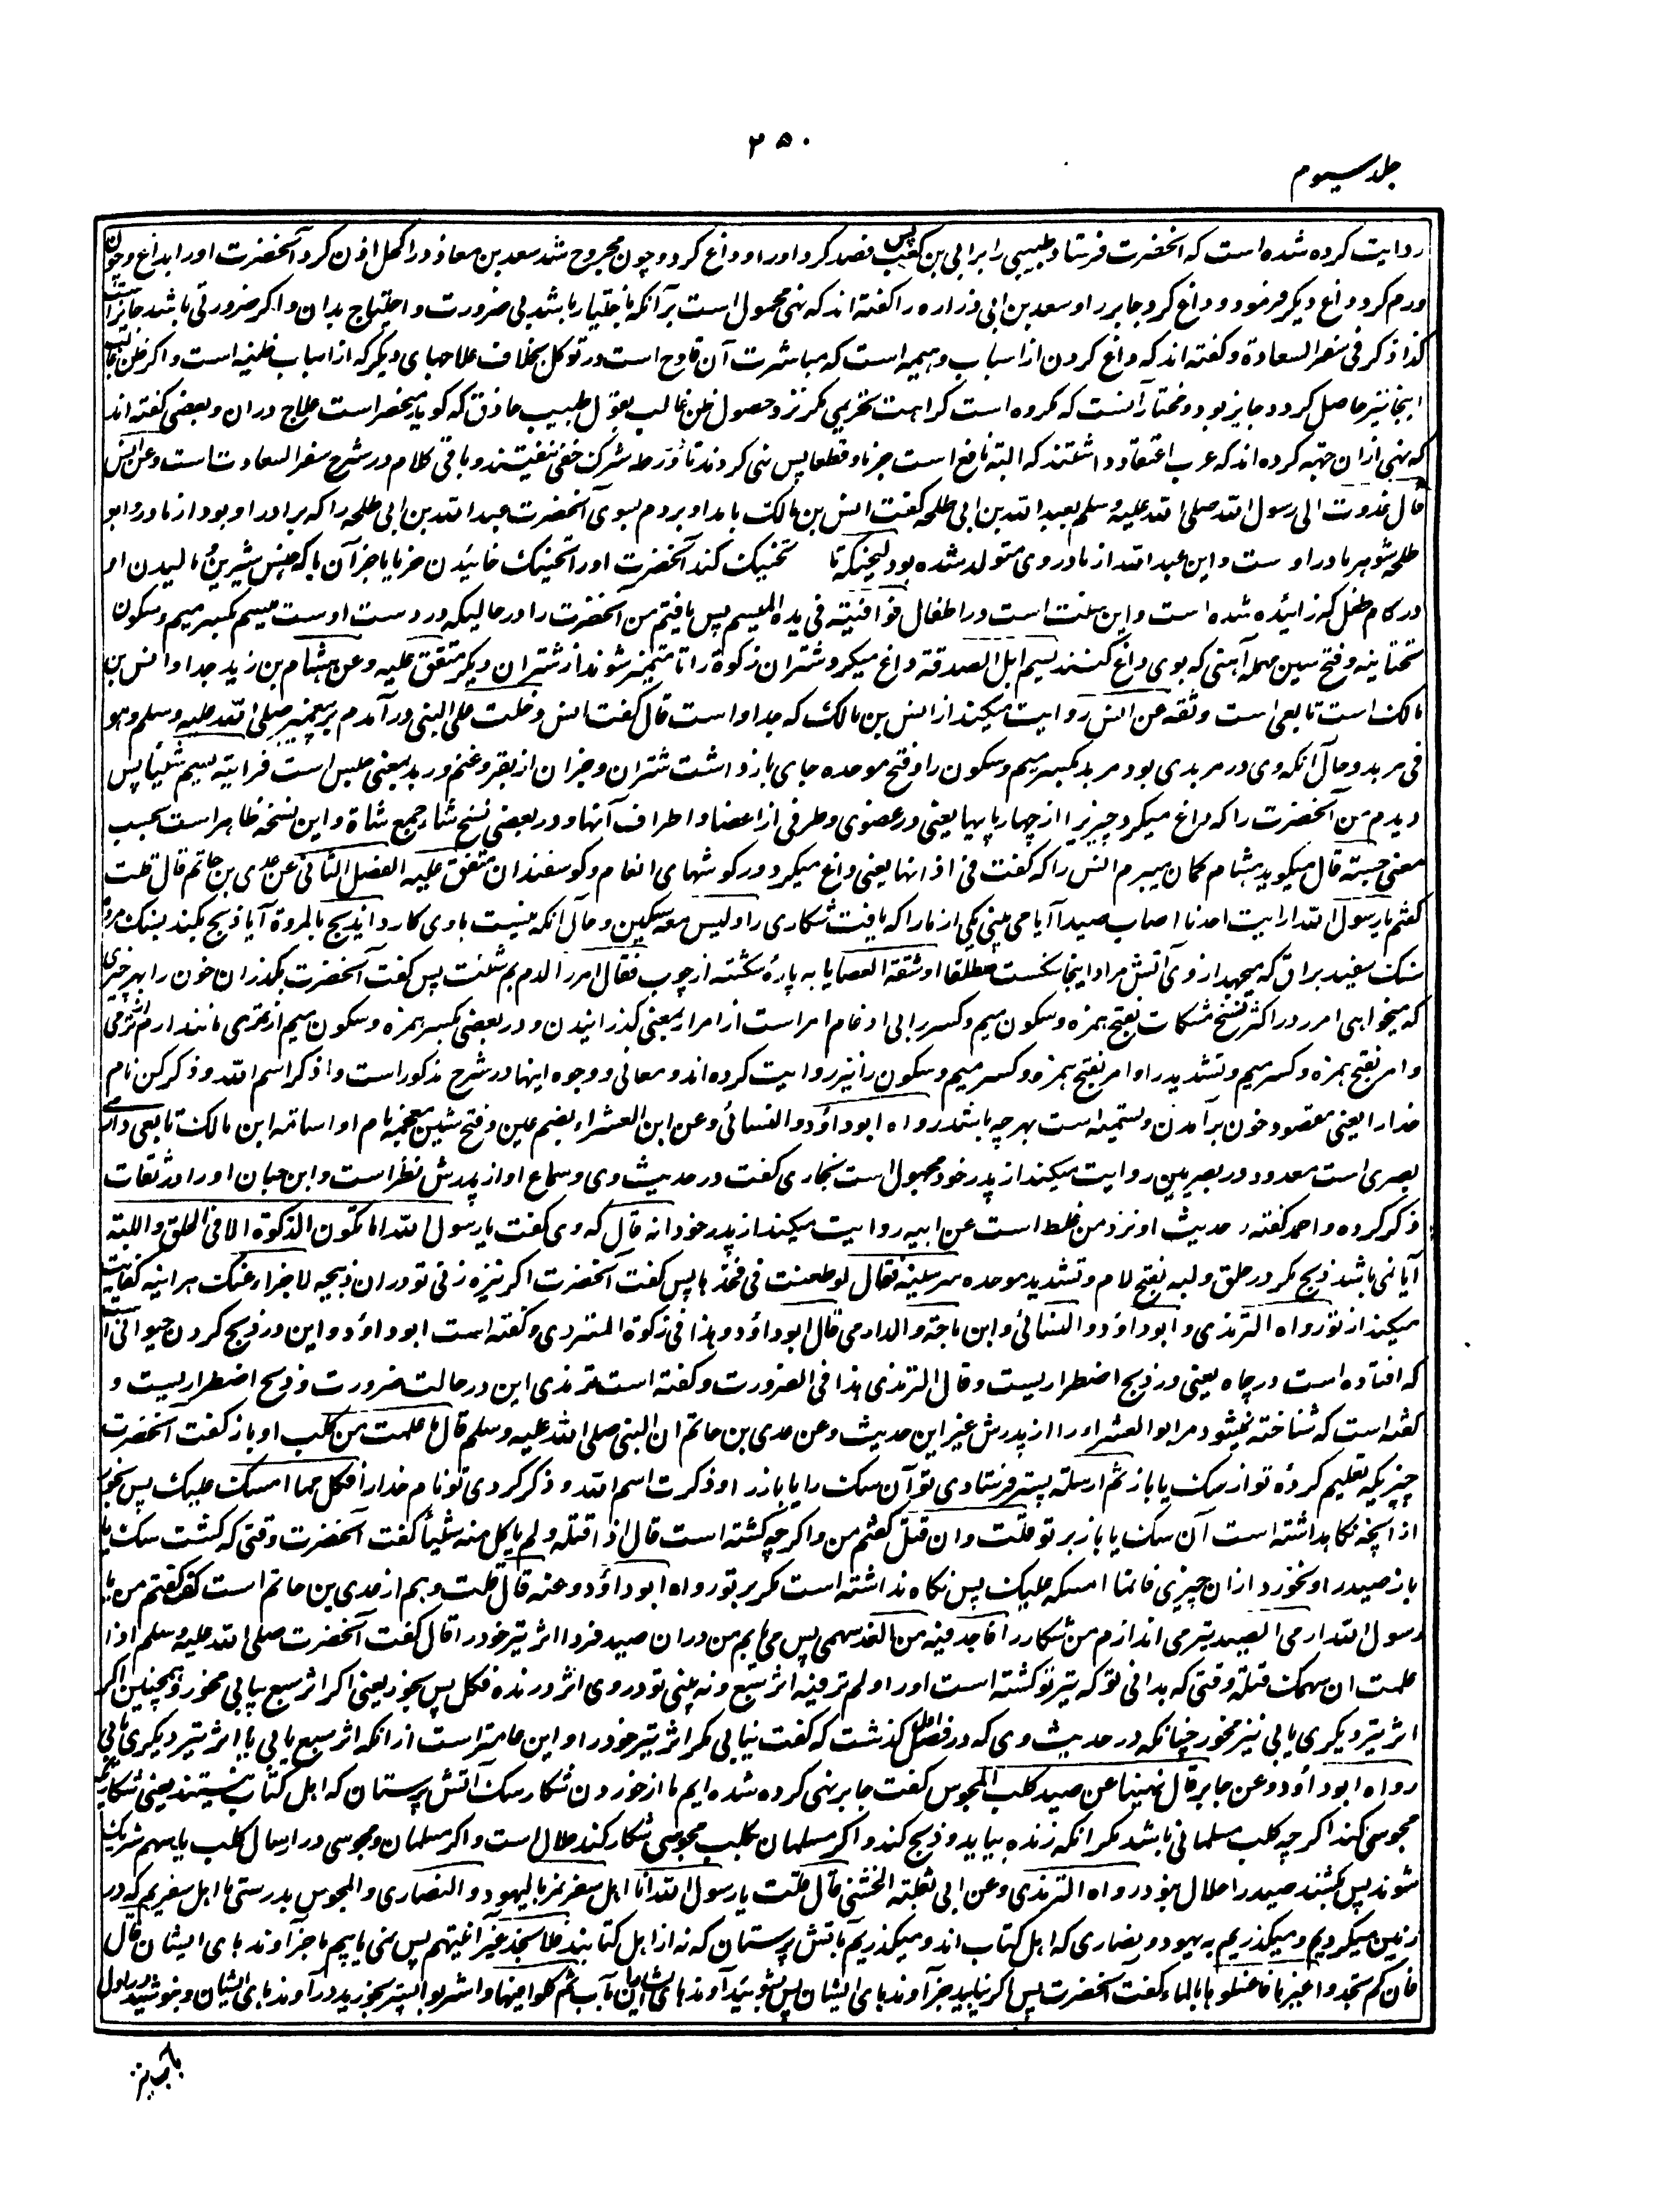 ۲۵۰
جلد سیوم
روایت کرده شده است که آنحضرت فرستاد طبیبی را بر ابی بن کعب پس فصد کرد اورا و داغ کرد و چون مجروح شد سعد بن معاذ در اکحل اذن کرد آنحضرت اورا بداغ و چون
ورم کرد داغ دیگر فرمود و داغ کرد جابر را و سعد بن ابی زراره را گفته اند که نهی محمول است بر آنکه باختیار باشد بی ضرورت و احتیاج بدان و اگر ضرورتی باشد جایز است
کذا ذکر فی سفر السعادة و گفته اند که داغ کردن از اسباب وهمیه است که مباشرت آن قادح است در توکل بخلاف علاجهای دیگر که از اسباب ظنیه است و اگر ظن غالب
اینجا نیز حاصل گردد جایز بود و مختار آنست که مکروه است کراهت تحریمی مگر نزد حصول ظن غالب بقول طبیب حاذق که گوید منحصر است علاج در ان و بعضی گفته اند
که نهی ازان جهه کرده اند که عرب اعتقاد داشتند که البته نافع است جزما و قطعا پس نهی کردند تا در ورطه شرک خفی نیفتند و باقی کلام در شرح سفر السعادت است و عن انس
قال غدوت الی رسول الله صلی الله علیه و سلم بعبد الله بن ابی طلحه گفت انس بن مالک بامداد بردم بسوی آنحضرت عبد الله بن ابی طلحه را که برادر او بود از مادر و ابو
طلحه شوهر مادر اوست و این عبد الله از مادر وی متولد شده بود لیحنکه تا تحنیک کند آنحضرت اورا تحنیک خائیدن خرما یا جز آن با که جنس شیرین و مالیدن او
در کام طفل که زائیده شده است و این سنت است در اطفال فوافیته فی یده المیسم پس یافتم من آنحضرت را در حالیکه در دست اوست میسم بکسر میم و سکون
تحتانیه و فتح سین مهمله آهنی که بوی داغ کنند یسم ابل الصدقة داغ میکرد شتران زکوة را تا متمیز شوند از شتران دیگر متفق علیه و عن هشام بن زید جد او انس بن
مالک است تابعی است و ثقه عن انس روایت میکند از انس بن مالک که جد اواست قال گفت انس دخلت علی النبی در آمدم بر پیغمبر صلی الله علیه و سلم و هو
فی مربد و حال آنکه وی در مربدی بود مربد بکسر میم و سکون را و فتح موحده جای بازداشت شتران و جز ان از بقر و غنم و ربد بمعنی حبس است فرایته یسم شیئا پس
دیدم من آنحضرت را که داغ میکرد چیزیرا از چهارپایها یعنی در عضوی و طرفی از اعضا و اطراف آنها و در بعضی نسخ شاء جمع شاة و این نسخه ظاهر است بحسب
معنی حسبته قال میگوید هشام گمان میبرم انس را که گفت فی اذانها یعنی داغ میکرد در گوشهای انعام و گوسفندان متفق علیه الفصل الثانی عن عدی بن حاتم قال قلت
گفتم یا رسول الله ارایت احدنا اصاب صیدا آیا می بینی یکی از ما را که یافت شکاری را و لیس معه سکین و حال آنکه نیست با وی کارد ایذبح بالمروة آیا ذبح بکند بسنگ مروه
سنگ سفید براق که میجهد از وی آتش مراد اینجا سنگست مطلقا او شقة العصا یا به پارۀ شکسته از چوب فقال امرر الدم بم شئت پس گفت آنحضرت بگذران خون را بهر چیزی
که میخواهی امرر در اکثر نسخ مشکات بفتح همزه و سکون میم و کسر را بی ادغام امر است از امرار بمعنی گذرانیدن و در بعضی بکسر همزه و سکون میم از مری مانند ارم از رمی
و امر بفتح همزه و کسر میم و تشدید را و امر بفتح همزه و کسر میم و سکون را نیز روایت کرده اند و معانی و وجوه اینها در شرح مذکور است و اذکر اسم الله و ذکر کن نام
خدا را یعنی مقصود خون برآمدن و تسمیه است بهر چه باشد رواه ابو داؤد و النسائی و عن ابن العشراء بضم عین و فتح شین معجمه نام او اسامه ابن مالک تابعی دارمی
بصری است معدود در بصریین روایت میکند از پدر خود مجهول است بخاری گفت در حدیث وی و سماع او از پدرش نظر است و ابن حبان اورا در ثقات
ذکر کرده و احمد گفته حدیث او نزد من غلط است عن ابیه روایت میکند از پدر خود انه قال که وی گفت یا رسول الله اما تکون الذکوة الا فی الحلق و اللبة
آیا نمی باشد ذبح مگر در حلق و لبه بفتح لام و تشدید موحده سر سینه فقال لو طعنت فی فخذها پس گفت آنحضرت اگر نیزه زنی تو در ان ذبیحه لاجزا عنک هر اینه کفایت
میکند از تو رواه الترمذی و ابو داؤد و النسائی و ابن ماجة و الدارمی قال ابو داؤد و هذا فی ذکوة المتردی و گفته است ابو داؤد و این در ذبح کردن حیوانی است
که افتاده است در چاه یعنی در ذبح اضطراریست و قال الترمذی هذا فی الضرورت و گفته است ترمذی این در حالت ضرورت و ذبح اضطراریست و
گفته است که شناخته نمیشود مر ابو العشراء را از پدرش غیر این حدیث و عن عدی بن حاتم ان النبی صلی الله علیه و سلم قال ما علمت من کلب او باز گفت آنحضرت
چیزیکه تعلیم کردۀ تو از سگ یا باز ثم ارسلته پستر فرستادی تو آن سگ را یا باز را و ذکرت اسم الله و ذکر کردی تو نام خدا را فکل مما امسک علیک پس بخور
از انچه نگاهداشته است آن سگ یا باز بر تو قلت و ان قتل گفتم من و اگر چه کشته است قال اذا قتله و لم یاکل منه شیئا گفت آنحضرت وقتی که کشت سگ یا
باز صید را و نخورد ازان چیزی فانما امسکه علیک پس نگاه نداشته است مگر بر تو رواه ابو داؤد و عنه قال قلت و هم از عدی بن حاتم است که گفتم من یا
رسول الله ارمی الصید تیر می اندازم من شکار را فاجد فیه من الغد سهمی پس می یابم من دران صید فردا اثر تیر خود را قال گفت آنحضرت صلی الله علیه و سلم اذا
علمت ان سهمک قتله وقتی که بدانی تو که تیر تو کشته است اورا و لم تر فیه اثر سبع و نه بینی تو در وی اثر درنده فکل پس بخور یعنی اگر اثر سبع یابی مخور و همچنین اگر
اثر تیر دیگری یابی نیز مخور چنانکه در حدیث وی که در فصل اول گذشت که گفت نیابی مگر اثر تیر خود را و این عامتر است از انکه اثر سبع یابی یا اثر تیر دیگری یابی
رواه ابو داؤد و عن جابر قال نهینا عن صید کلب المجوس گفت جابر نهی کرده شده ایم ما از خوردن شکار سگ آتش پرستان که اهل کتاب نیستند یعنی شکاریکه
مجوسی کند اگر چه کلب مسلمانی باشد مگر آنکه زنده بیابد و ذبح کند و اگر مسلمان بکلب مجوسی شکار کند حلال است و اگر مسلمان و مجوسی در ارسال کلب یا سهم شریک
شوند پس بکشند صید را حلال نبود رواه الترمذی و عن ابی ثعلبة الخشنی قال قلت یا رسول الله انا اهل سفر نمر بالیهود و النصاری و المجوس بدرستی ما اهل سفریم که در
زمین میگردیم و میگذریم به یهود و نصاری که اهل کتاب اند و میگذریم باتش پرستان که نه از اهل کتابند فلا نجد غیر آنیتهم پس نمی یابیم ما جز آوندهای ایشان قال
فان لم تجدوا غیرها فاغسلوها بالماء گفت آنحضرت پس اگر نیابید جز آوندهای ایشان پس بشوئید آوندهای ایشان باب ثم کلوا فیها و اشربوا پستر بخورید در آوندهای ایشان و بنوشید